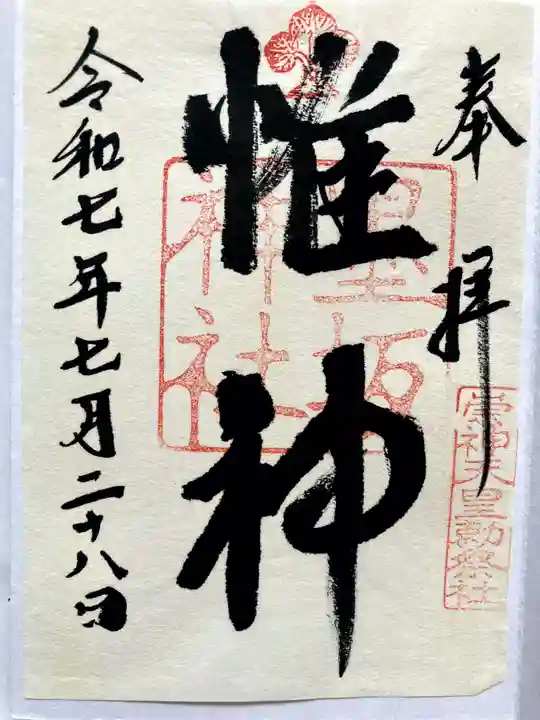 奉拝
崇神天皇勅祭社
惟神
墨坂
神社
令和七年七月二十八日